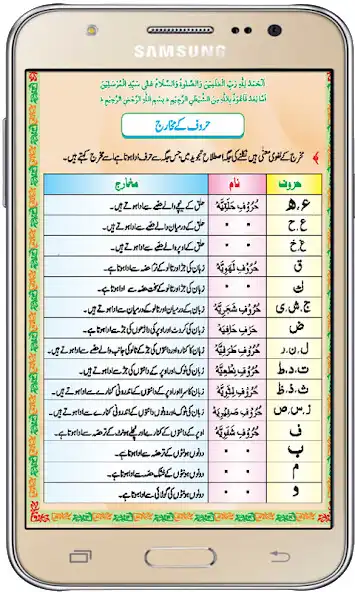 SAMSUNG
اَلْحَمْدُ لِلّٰهِ رَبِّ الْعٰلَمِیْنَ وَالصَّلٰوةُ وَالسَّلَامُ عَلٰی سَیِّدِ الْمُرْسَلِیْنَ
اَمَّا بَعْدُ فَاَعُوْذُ بِاللّٰهِ مِنَ الشَّیْطٰنِ الرَّجِیْمِ بِسْمِ اللّٰهِ الرَّحْمٰنِ الرَّحِیْمِ
حروف کے مخارج
مخرج کے لغوی معنٰی ہیں نکلنے کی جگہ، اصطلاحِ تجوید میں جس جگہ سے حرف ادا ہوتا ہے اسے مخرج کہتے ہیں۔
حروف نام مخارج
ء، ھ حُرُوْفِ حَلْقِیَّہ حلق کے نیچے والے حصّے سے ادا ہوتے ہیں۔
ع، ح " " حلق کے درمیان والے حصّے سے ادا ہوتے ہیں۔
غ، خ " " حلق کے اوپر والے حصّے سے ادا ہوتے ہیں۔
ق حُرُوْفِ لَهْوِیَّہ زبان کی جڑ اور تالو کے نرم حصّہ سے ادا ہوتا ہے۔
ك " " زبان کی جڑ اور تالو کے سخت حصّہ سے ادا ہوتا ہے۔
ج، ش، ی حُرُوْفِ شَجَرِیَّہ زبان کے درمیان اور تالو کے درمیان سے ادا ہوتے ہیں۔
ض حَرفِ حَافِیَہ زبان کی کروٹ اور اوپر کی داڑھوں کی جڑ سے ادا ہوتا ہے۔
ل، ن، ر حُرُوْفِ طَرَفِیَّہ زبان کا کنارہ اور دانتوں کی جڑ کے تالو کی جانب والے حصّے سے ادا ہوتے ہیں۔
ت، د، ط حُرُوْفِ نِطْعِیَّہ زبان کی نوک اور اوپر کے دانتوں کی جڑ سے ادا ہوتے ہیں۔
ث، ذ، ظ حُرُوْفِ لِثَوِیَّہ زبان کا سرا اور اوپر کے دانتوں کے اندرونی کنارے سے ادا ہوتے ہیں۔
ز، س، ص حُرُوْفِ صَفِیْرِیَّہ زبان کی نوک اور دونوں دانتوں کے اندرونی کنارے سے ادا ہوتے ہیں۔
ف حُرُوْفِ شَفَوِیَّہ اوپر کے دانتوں کے کنارے اور نچلے ہونٹ کے تر حصّہ سے ادا ہوتا ہے۔
ب " " دونوں ہونٹوں کے تر حصّہ سے ادا ہوتا ہے۔
م " " دونوں ہونٹوں کے خشک حصّہ سے ادا ہوتا ہے۔
و " " دونوں ہونٹوں کی گولائی سے ادا ہوتا ہے۔